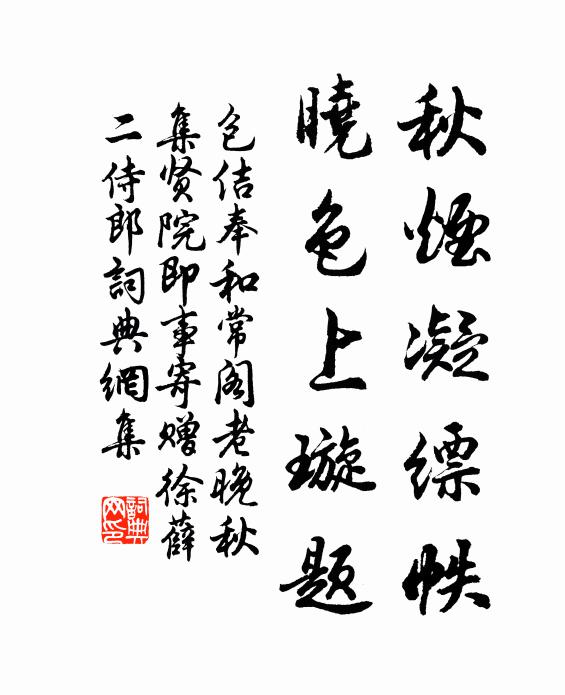 秋煙凝缥帙
曉色上璇题
包佶奉和常阁老晚秋
集贤院即事寄赠徐薛
二侍郎詞典網集
詞典
网印